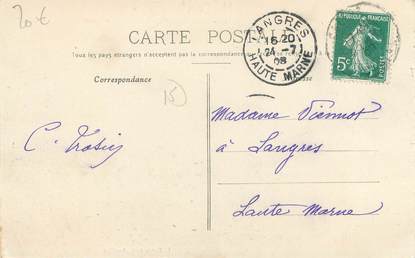 20 €
CARTE POSTALE
Tous les pays étrangers n'acceptent pas la correspondance
Correspondance
LANGRES
16-20
24-7
08
HAUTE MARNE
RÉPUBLIQUE FRANÇAISE
5c
POSTES
15
C.
Madame Viennot
à Langres
Haute Marne